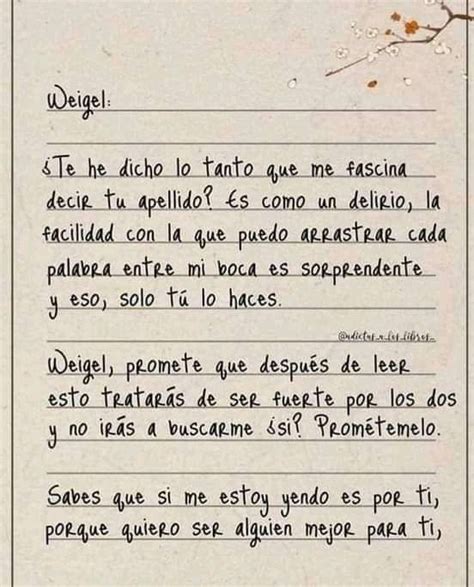 Weigel:
¿Te he dicho lo tanto que me fascina
decir tu apellido? Es como un delirio, la
facilidad con la que puedo arrastrar cada
palabra entre mi boca es sorprendente
y eso, solo tú lo haces.
@adictas_a_los_libros_
Weigel, promete que después de leer
esto tratarás de ser fuerte por los dos
y no irás a buscarme ¿si? Prométemelo.
Sabes que si me estoy yendo es por ti,
porque quiero ser alguien mejor para ti,